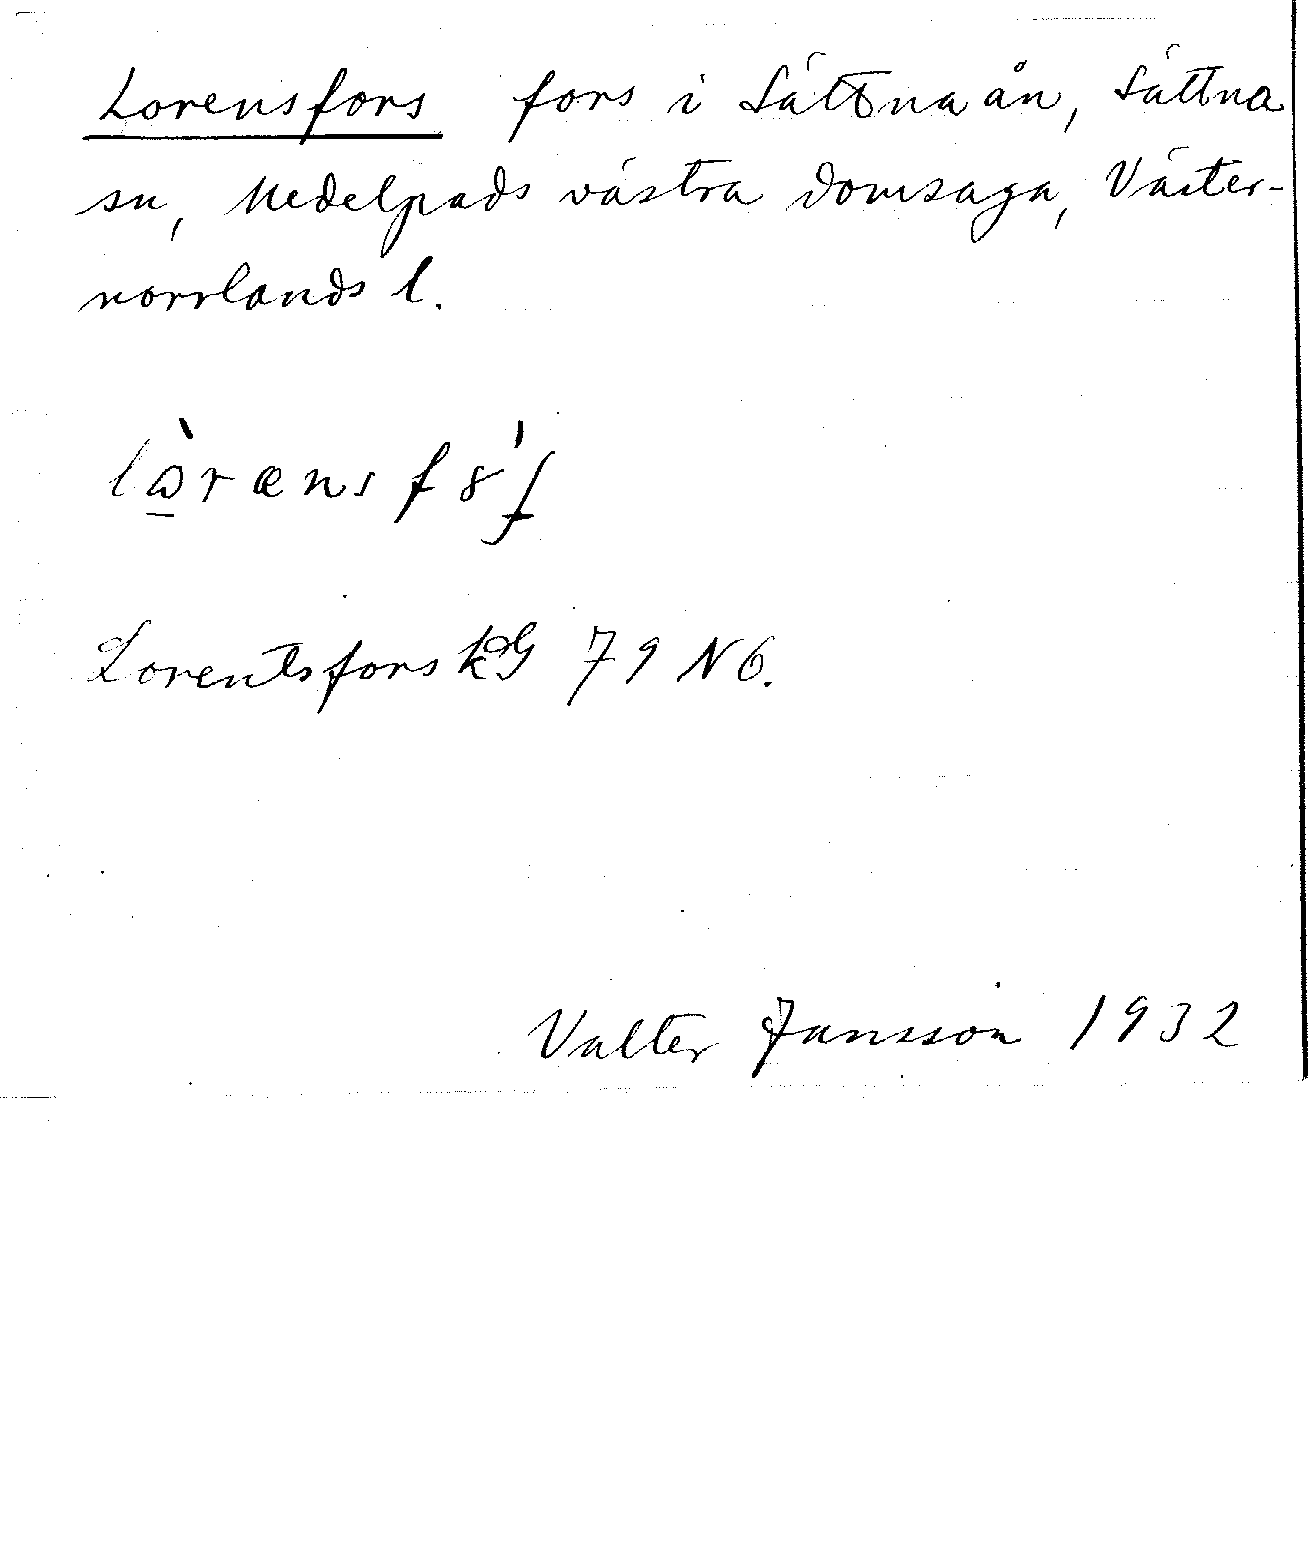 Lorensfors fors i Sättnaån, Sättna
sn, Medelpads västra domsaga, Väster-
norrlands l.
Lorentsfors kG 79 NO.
Valter Jansson 1932